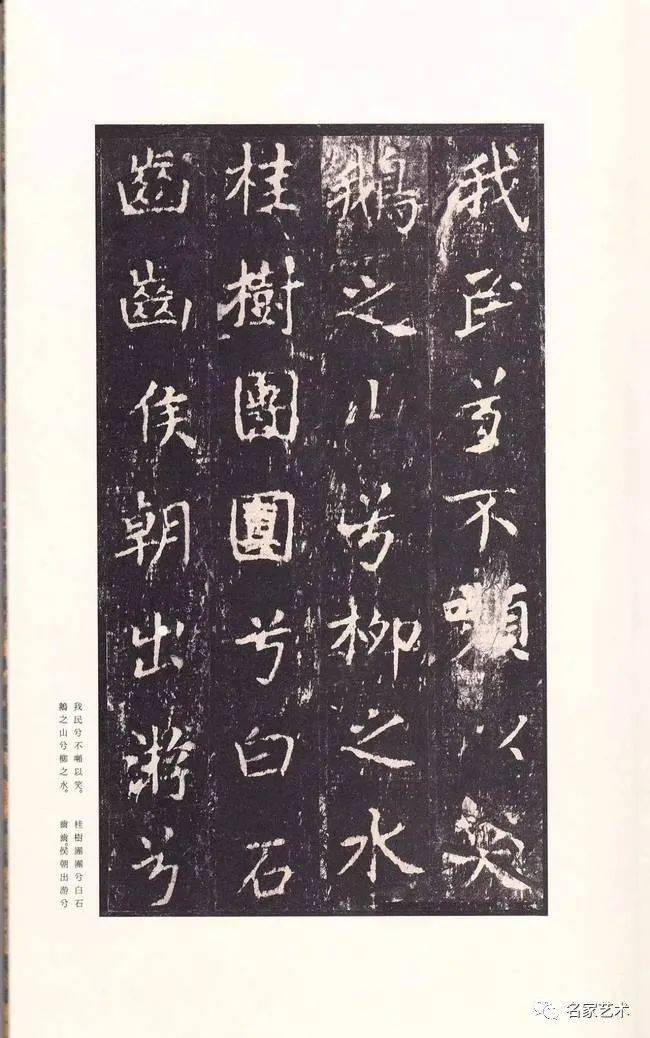 我民兮不嚬以笑
鵝之山兮柳之水
桂樹團團兮白石
齒齒侯朝出游兮
我民兮不嚬以笑。
鵝之山兮柳之水。
桂樹團團兮白石
齒齒。侯朝出游兮
名家艺术